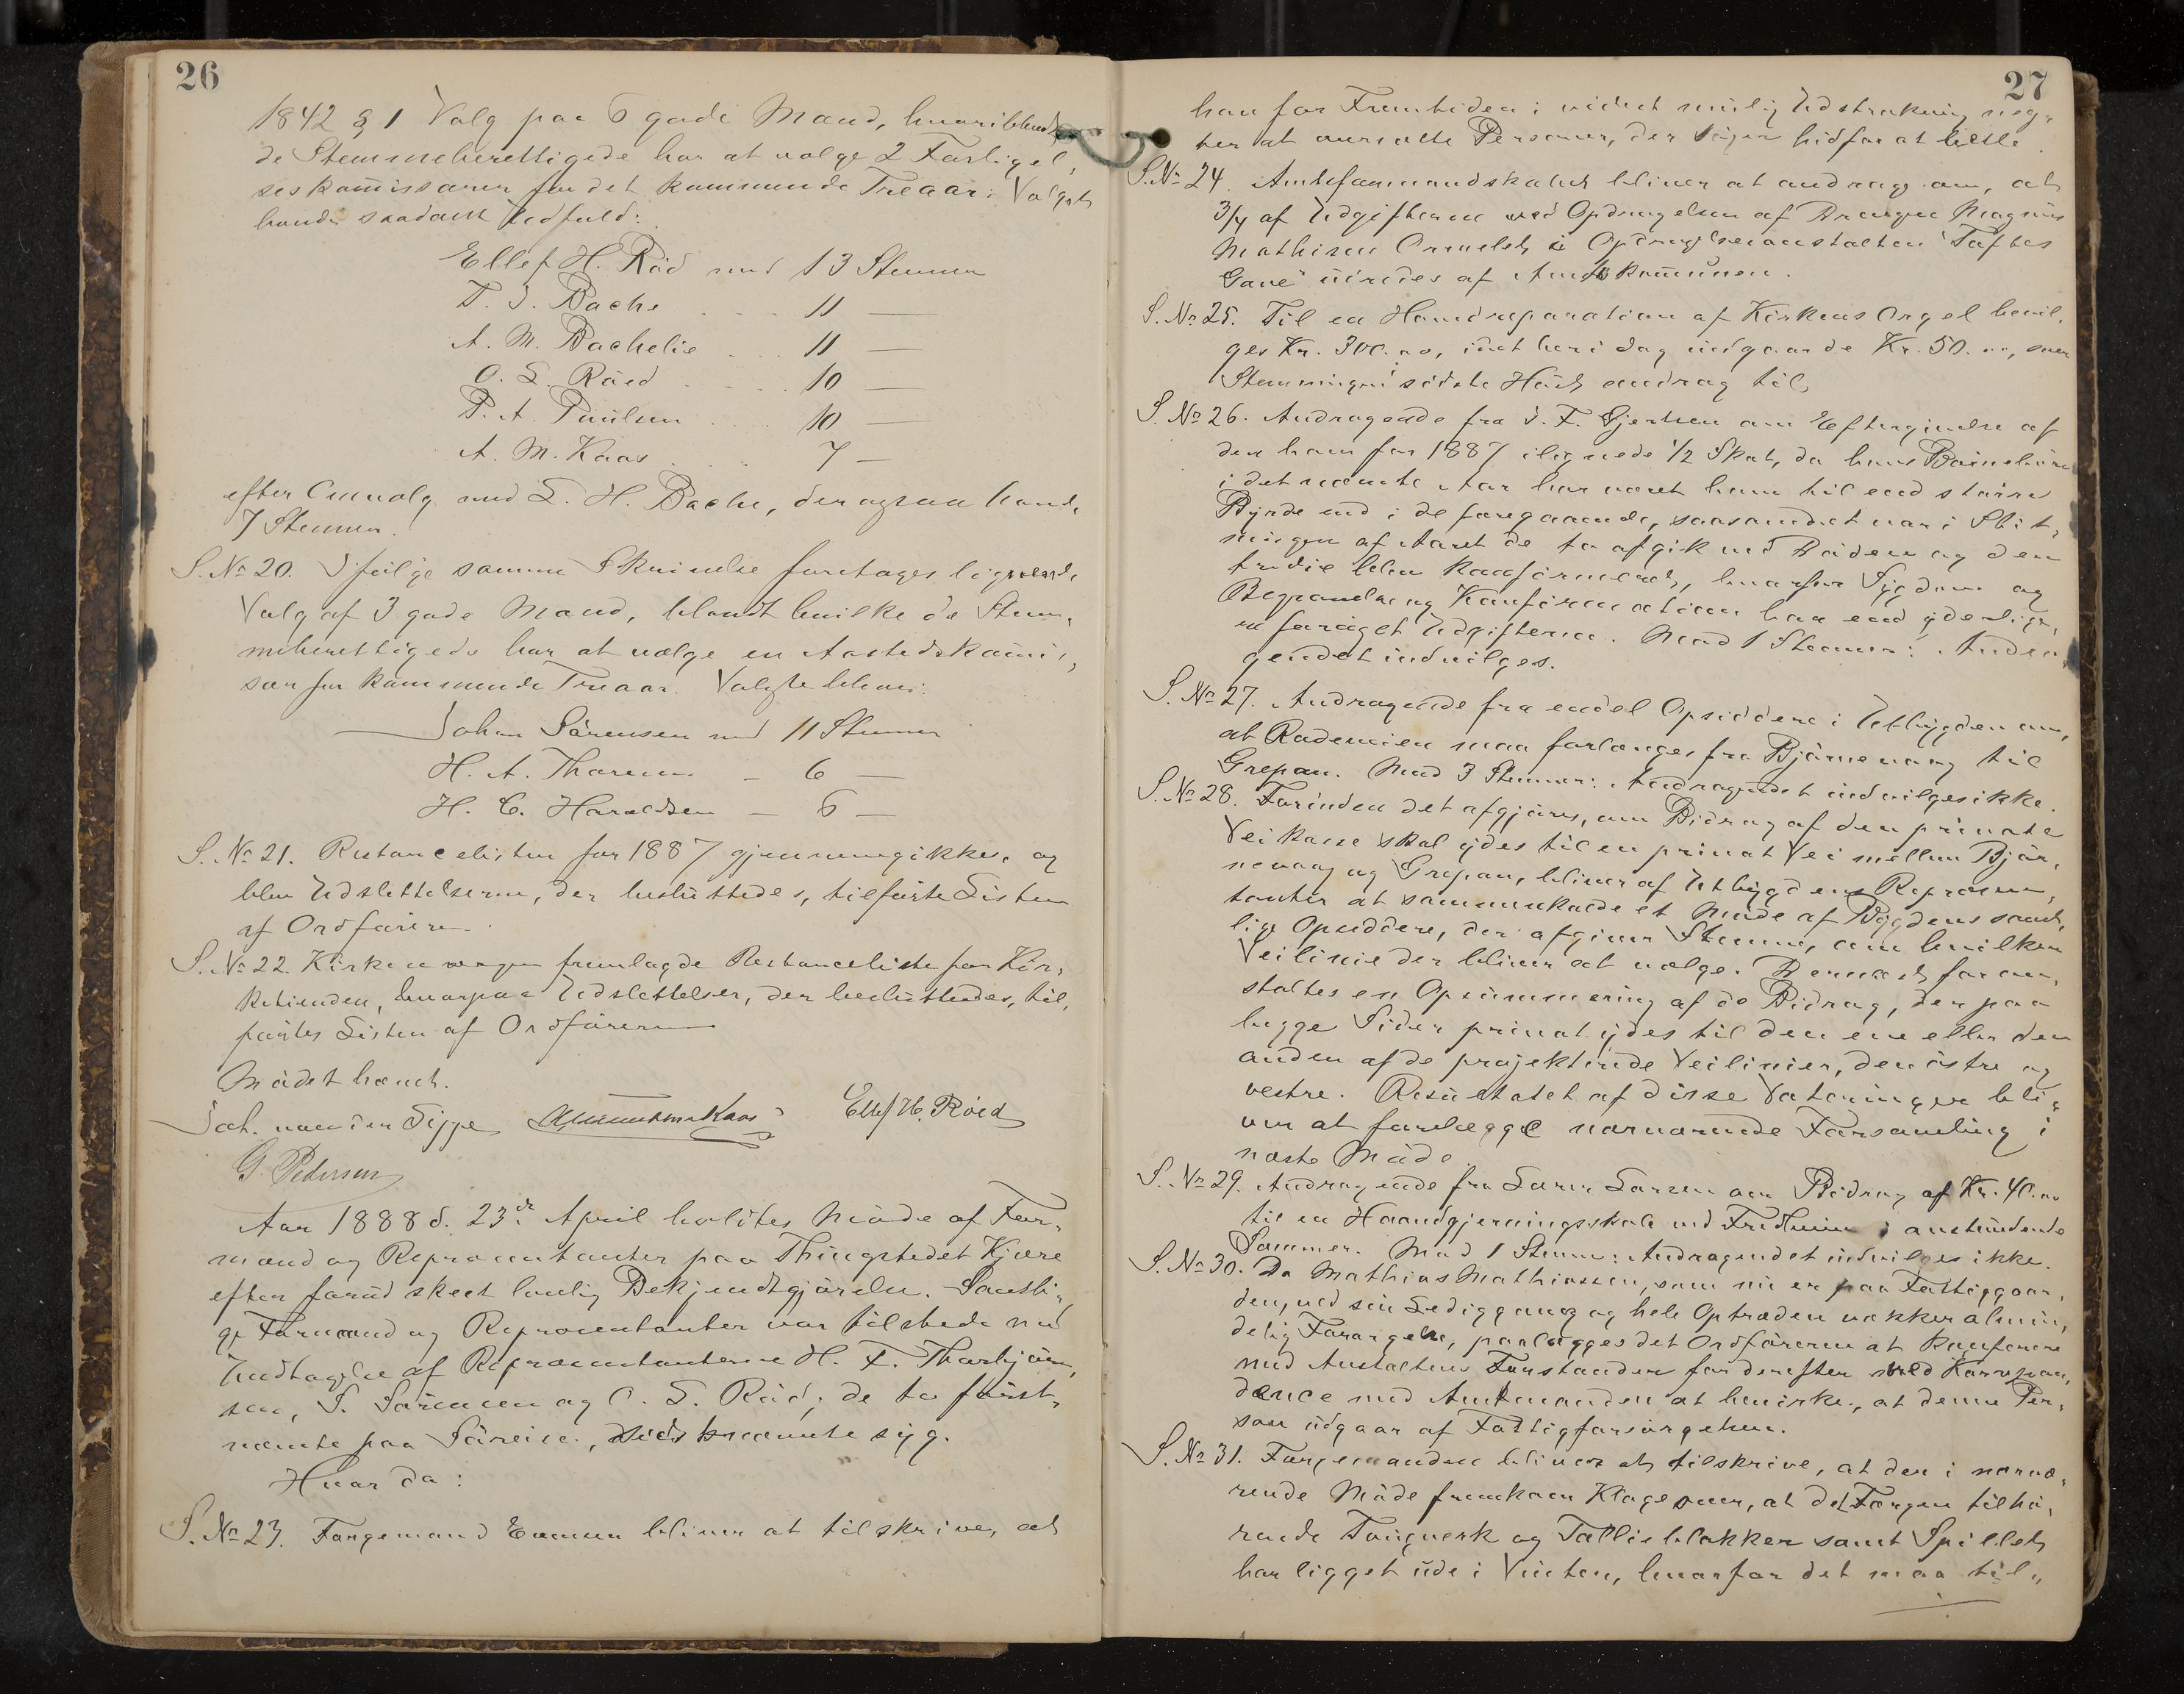 26
1842 § 1 Valg paa 6 gode Mænd, hvoriblandt
de Stemmeberettigede har at vælge 2 Forligel,
seskommissærer for det kommende Treaar: Valget
havde saadant Udfald:
Ellef H. Röd med 13 Stemmer
T. J. Bache . . . 11 —
A. M. Bachelie . . . 11 —
O. L. Röed . . . 10 —
P. A. Paulsen . . . 10 —
A. M. Kaas . . . 7 —
efter Omvalg med L. H. Bache, der ogsaa havde
7 Stemmer.
S. No 20. Ifølge samme Skrivelse foretages ligeledes
Valg af 3 gode Mænd, blandt hvilke de Stem,
meberettigede har at vælge en Aastedskommis,
sær for kommende Treaar. Valgte blev:
Johan Sörensen med 11 Stemmer
H. A. Thoresen — 6 —
H. C. Haraldsen — 6 —
S. No 21. Restancelisten for 1887 gjennemgikkes og
blev Udslettelserne, der besluttedes, tilførte Listen
af Ordføreren.
S. No 22. Kirkeværgen fremlagde Restanceliste for Kir,
ketienden, hvorpaa Udslettelser, der besluttedes, til,
førtes Listen af Ordføreren
Mødet hævet.
Joh. van der Lippe Kaas Ellef H. Röed
G. Pedersen
Aar 1888 d. 23de April holdtes Møde af For,
mænd og Repræsentanter paa Thingstedet Kjære
efter forud skeet lovlig Bekjendtgjørelse. Samtli,
ge Formænd og Repræsentanter var tilstede med
Undtagelse af Repræsentanterne H. F. Thorbjörn,
sen, S. Sörensen og O. L. Röd; de to først,
nævnte paa Søreise, sidstnævnte syg.
Hvor da:
S. No 23. Færgemand Evensen bliver at tilskrive, at
27
han for Fremtiden i videst mulig Udstrækning neg,
ter at oversætte Personer, der søger hidfor at betle.
S. No 24. Amtsformandskabet bliver at andrage om, at
3/4 af Udgifterne ved Opdragelsen af Drengen Magnus
Mathisen Ormelet i Opdragelsesanstalten "Toftes
Gave" udredes af Amtskommunen.
S. No 25. Til en Hovedreparation af Kirkens Orgel bevil,
ges Kr. 300.00, idet heri dog indgaar de Kr. 50.00, som
Stemningen sidste Høst androg til,
S. No 26. Andragende fra J. F. Gjertsen om Eftergivelse af
den ham for 1887 ilignede 1/2 Skat, da hans Børneborn
i det nævnte Aar har været ham til end større
Byrde end i de foregaaende, saasom det var i Slut,
ningen af Aaret de to afgik ved Döden og den
tredie blev konfirmeret, hvorfor Sygdom og
Begravelse og Konfirmation har end yderlige,
re forøget Udgifterne. Mod 1 Stemme: Andra,
gendet indvilges.
S. No 27. Andragende fra endel Opsiddere i Utbygden om,
at Rodeveien maa forlænges fra Bjørnevaag til
Grepan. Mod 3 Stemmer: Andragendet indvilges ikke.
S. No 28. Forinden det afgjøres, om Bidrag af den private
Veikasse skal ydes til en privat Vei mellem Bjør,
nevaag og Grepan, bliver af Utbygdens Repræsen,
tanter at sammenkalde et Møde af Bygdens samt,
lige Opsiddere, der afgiver Stemme, om hvilken
Veilinie der bliver at vælge. Dernæst foran,
staltes en Opsummering af de Bidrag, der paa
begge Sider privat ydes til den ene eller den
anden af de projekterede Veilinier, den østre og
vestre. Resultatet af disse Voteringer bli,
ver at forelægge nærværende Forsamling i
næste Møde.
S. No 29. Andragende fra Søren Larsen om Bidrag af Kr. 40.00
til en Haandgjerningsskole ved Fredheim i anstundende
Sommer. Mod 1 Stemme: Andragendet indvilges ikke.
S. No 30. Da Mathias Mathiassen, som nu er paa Fattiggaar,
den, ved sin Lediggang og hele Optræden vækker almin,
delig Forargelse, paalægges det Ordføreren at konferere
med Anstaltens Forstander for derefter ved Korrespon,
dence med Amtmanden at bevirke, at denne Per,
son udgaar af Fattigforsørgelsen.
S. No 31. Færgemanden bliver at tilskrive, at der i nærvæ,
rende Møde fremkom Klage over, at det Færgen tilhø,
rende Tougverk og Tallieblokker samt Spillet
har ligget ude i Vinter, hvorfor det maa til,,